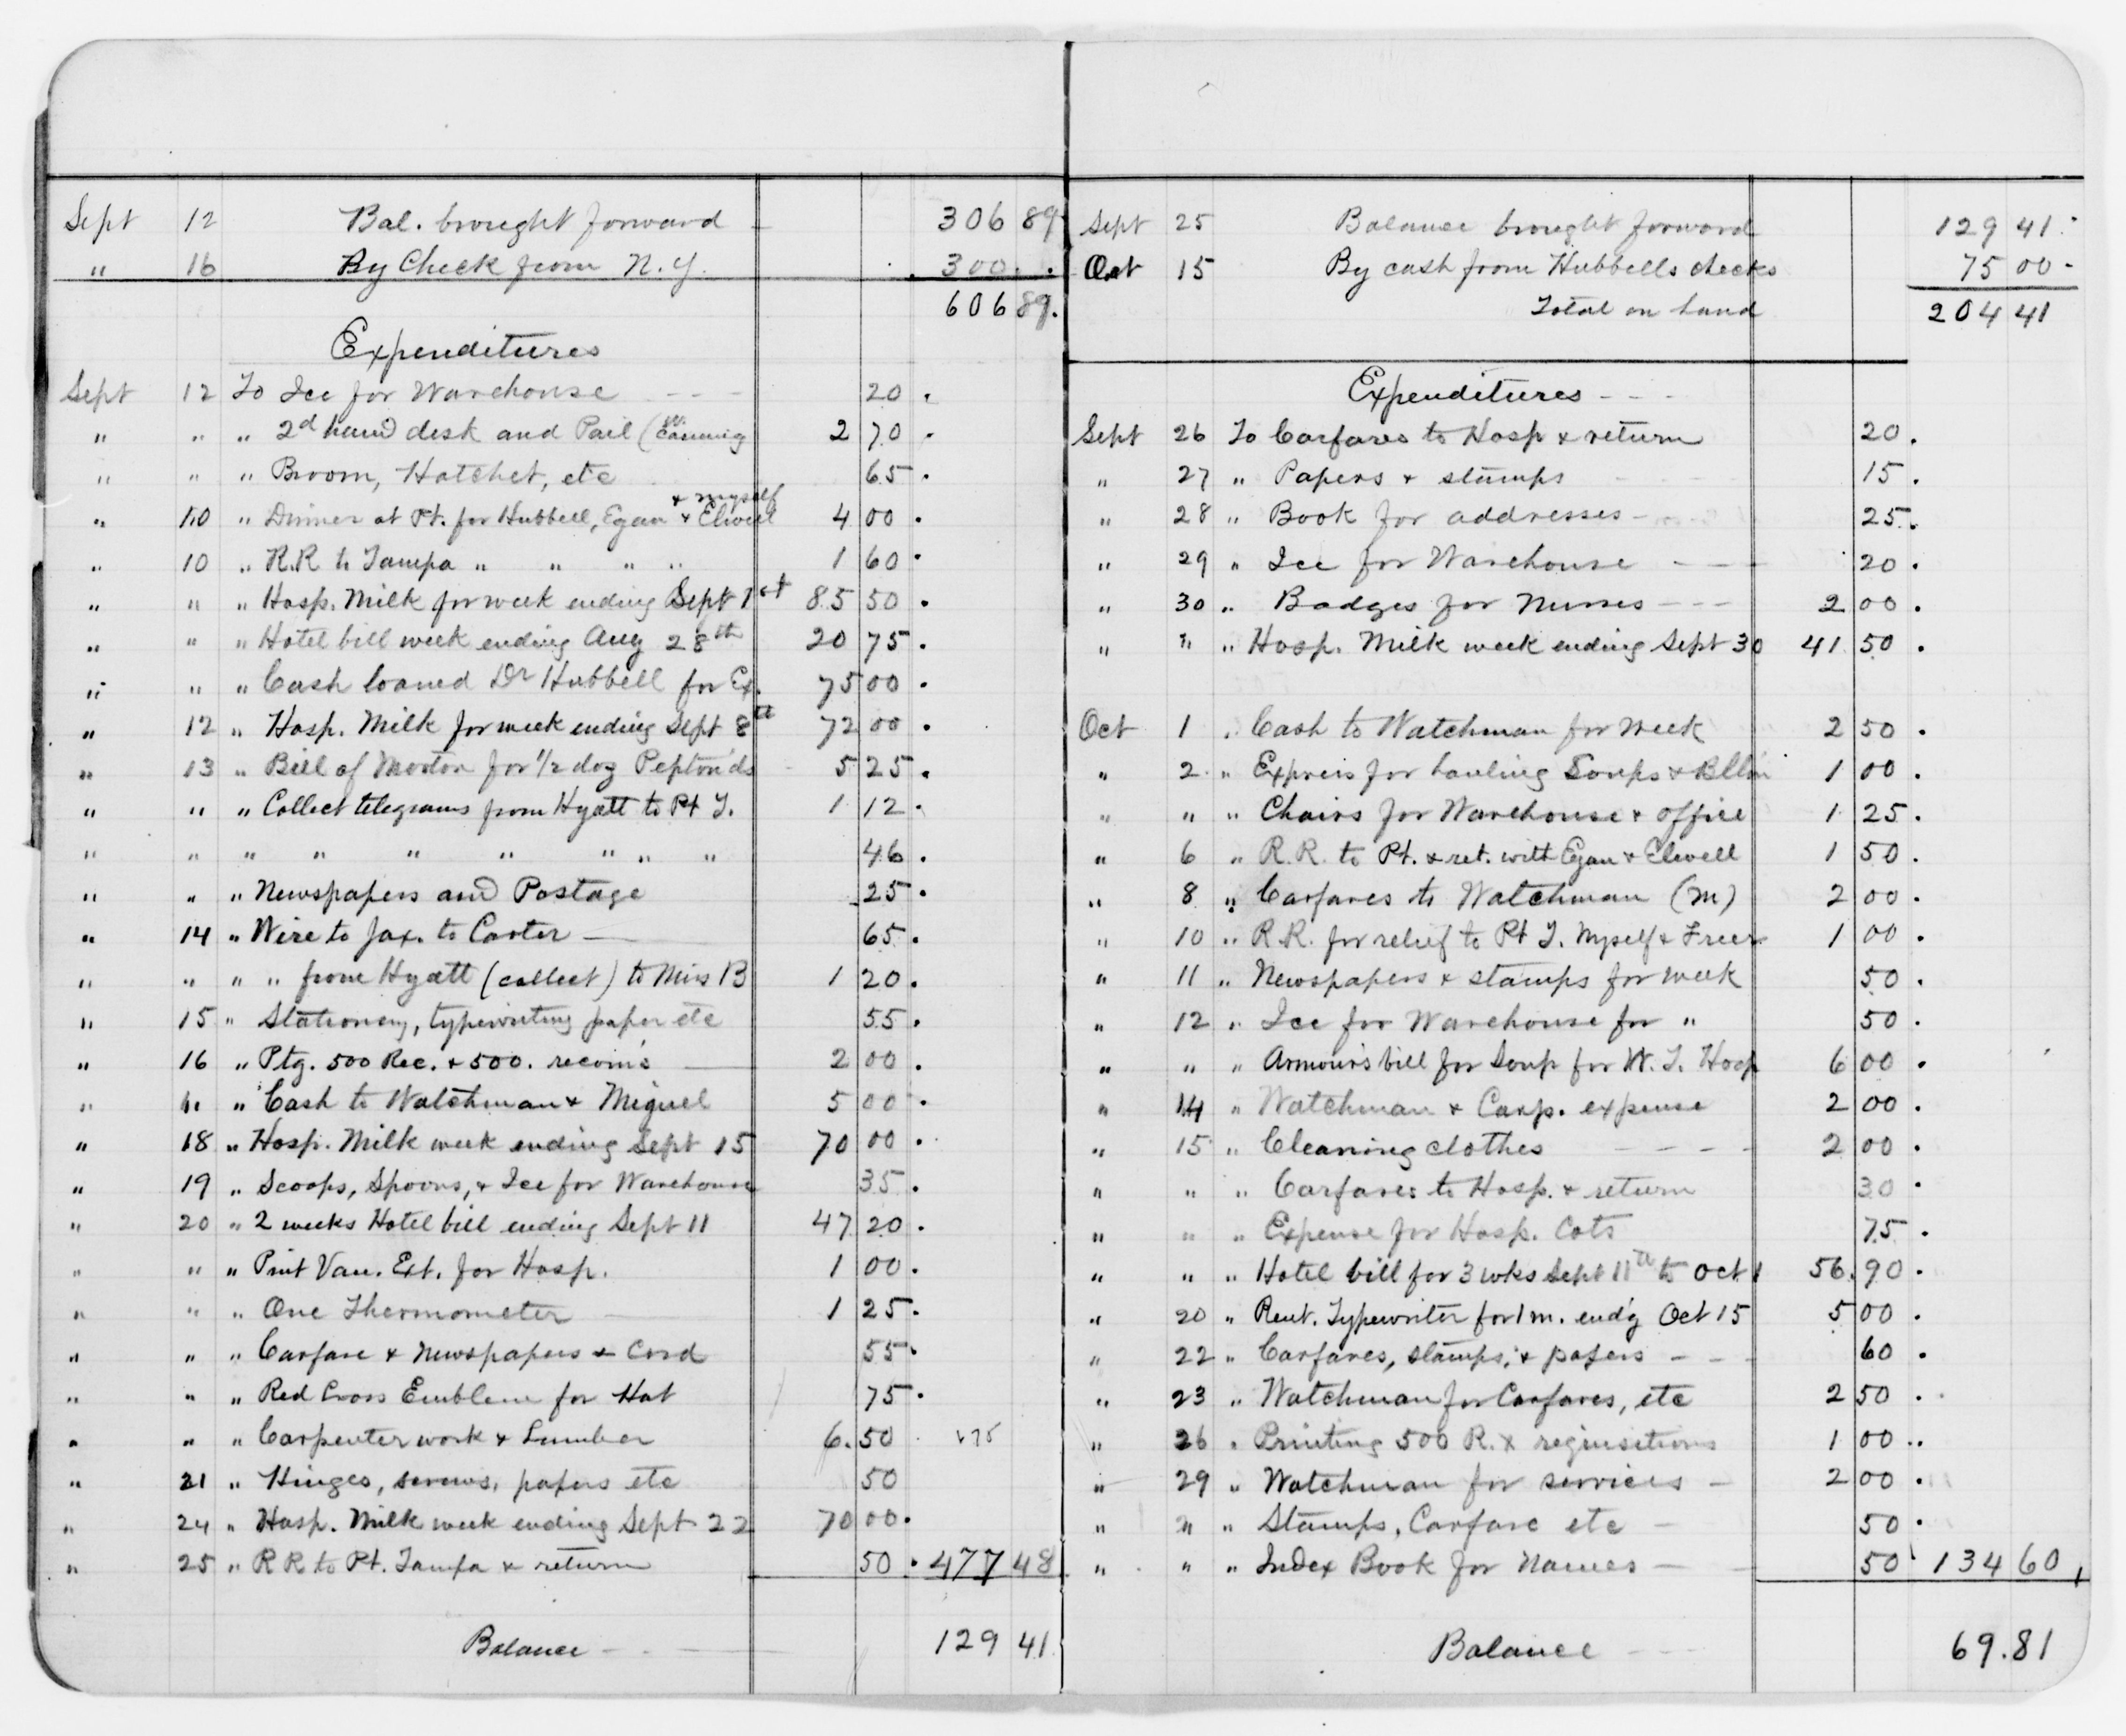 Sept 12 Bal. brought forward 306 89
" 16 By Check from N.Y. 300. .
606 89.
Expenditures
Sept 12 To Ice for Warehouse - - - 20 .
" " " 2d hand desk and Pail ( 2 70 .
" " " Broom, Hatchet, etc 65 .
& myself
" 10 " Dinner at Pt. for Hubbell, Egan & Elwell 4 00 .
" 10 " R.R to Tampa " " " " 1 60 .
" " " Hosp. Milk for week ending Sept 1st 85 50 .
" " " Hotel bill week ending Aug 28th 20 75 .
" " " Cash loaned Dr Hubbell for Ex. 75 00 .
" 12 " Hosp. Milk for week ending Sept 8th 72 00 .
" 13 " Bill of Morton for 1/2 doz Pepton'ds 5 25 .
" " " Collect telegrams from Hyatt to Pt T. 1 12 .
" " " " " " " " " 46 .
" " " Newspapers and Postage 25 .
" 14 " Wire to Jax. to Carter — 65 .
" " " " from Hyatt (collect) to Miss B 1 20 .
" 15 " Stationery, typewriting paper etc 55 .
" 16 " Ptg. 500 Rec. & 500. recom's — 2 00 .
" " " Cash to Watchman & Miguel 5 00 .
" 18 " Hosp. Milk week ending Sept 15 70 00 .
" 19 " Scoops, Spoons, & Ice for Warehouse 35 .
" 20 " 2 weeks Hotel bill ending Sept 11 47 20 .
" " " Pint Van. Ext. for Hosp. 1 00 .
" " " One Thermometer — 1 25 .
" " " Carfare & Newspapers & Cord 55 .
" " " Red Cross Emblem for Hat 75 .
" " " Carpenter work & Lumber 6. 50
" 21 " Hinges, screws, papers etc 50
" 24 " Hosp. Milk week ending Sept 22 70 00 .
" 25 " R R to Pt. Tampa & return 50 . 477 48
Balance - - — 129 41
Sept 25 Balance brought forward 129 41 .
Oct 15 By cash from Hubbells checks 75 00 -
Total on hand 204 41
Expenditures - - -
Sept 26 To Carfares to Hosp & return 20 .
" 27 " Papers & stamps 15 .
" 28 " Book for addresses - 25 .
" 29 " Ice for Warehouse - — - 20 .
" 30 " Badges for Nurses - - - 2 00 .
" " " Hosp. Milk week ending Sept 30 41 50 .
Oct 1 " Cash to Watchman for week 2 50 .
" 2 " Express for hauling Soups & 1 00 .
" " " Chairs for Warehouse & office 1 25 .
" 6 " R. R. to Pt. & ret. with Egan & Elwell 1 50 .
" 8 " Carfares to Watchman (M) 2 00 .
" 10 " R.R. for relief to Pt T. Myself & Freer 1 00 .
" 11 " Newspapers & stamps for week 50 .
" 12 " Ice for Warehouse for " 50 .
" " " Armour's bill for Soup for W. T. Hosp 6 00 .
" 14 " Watchman & Carp. expense 2 00 .
" 15 " Cleaning clothes - - - - 2 00 .
" " " Carfares to Hosp. & return 30 .
" " " Expense for Hosp. Cots 75 .
" " " Hotel bill for 3 wks Sept 11th to Oct 1 56. 90 .
" 20 " Rent. Typewriter for 1 m. end'g Oct 15 5 00 .
" 22 " Carfares, stamps, & papers - - - 60 .
" 23 " Watchman for Carfares, etc 2 50 .
" 26 " Printing 500 R. & requisitions 1 00 ..
" 29 " Watchman for services - 2 00 .
" " " Stamps, Carfare etc - 50 .
" " " Index Book for Names - 50 134 60
Balance - - - 69.81